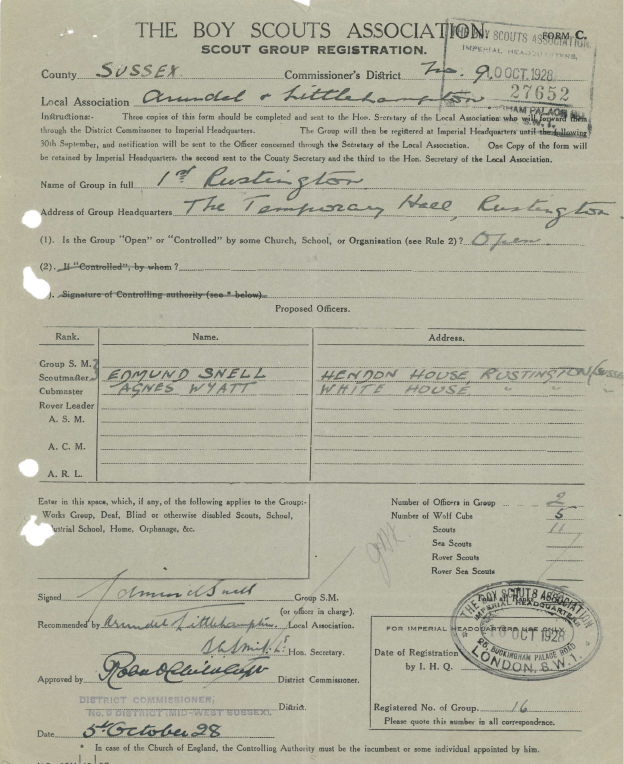 THE BOY SCOUTS ASSOCIATION.
FORM C.
SCOUT GROUP REGISTRATION.
THE BOY SCOUTS ASSOCIATION,
IMPERIAL HEADQUARTERS,
10 OCT. 1928
27652
HAM PALACE
S.W.1.
County SUSSEX Commissioner's District No. 9
Local Association Arundel & Littlehampton
Instructions:- Three copies of this form should be completed and sent to the Hon. Secretary of the Local Association who will forward them
through the District Commissioner to Imperial Headquarters. The Group will then be registered at Imperial Headquarters until the following
30th September, and notification will be sent to the Officer concerned through the Secretary of the Local Association. One Copy of the form will
be retained by Imperial Headquarters, the second sent to the County Secretary and the third to the Hon. Secretary of the Local Association.
Name of Group in full 1st Rustington
Address of Group Headquarters The Temporary Hall, Rustington.
(1). Is the Group "Open" or "Controlled" by some Church, School, or Organisation (see Rule 2)? Open.
(2). If "Controlled", by whom?
). Signature of Controlling authority (see * below).
Proposed Officers.
Rank. Name. Address.
Group S. M.
Scoutmaster EDMUND SNELL HENDON HOUSE, RUSTINGTON
Cubmaster AGNES WYATT WHITE HOUSE " " "
Rover Leader
A. S. M.
A. C. M.
A. R. L.
Enter in this space, which, if any, of the following applies to the Group:-
Works Group, Deaf, Blind or otherwise disabled Scouts, School,
ustrial School, Home, Orphanage, &c.
Number of Officers in Group 2
Number of Wolf Cubs 5
Scouts 11
Sea Scouts
Rover Scouts
Rover Sea Scouts
Signed Edmund Snell Group S.M.
(or officer in charge).
Recommended by Arundel Littlehampton Local Association.
Hon. Secretary.
Approved by District Commissioner.
DISTRICT COMMISSIONER,
No. 9 DISTRICT (MID-WEST SUSSEX).
District.
Date 5th October 28
THE BOY SCOUTS ASSOCIATION
IMPERIAL HEADQUARTERS
10 OCT 1928
25, BUCKINGHAM PALACE ROAD
LONDON, S.W.1.
FOR IMPERIAL HEADQUARTERS USE ONLY
Date of Registration
by I. H. Q.
Registered No. of Group. 16
Please quote this number in all correspondence.
* In case of the Church of England, the Controlling Authority must be the incumbent or some individual appointed by him.